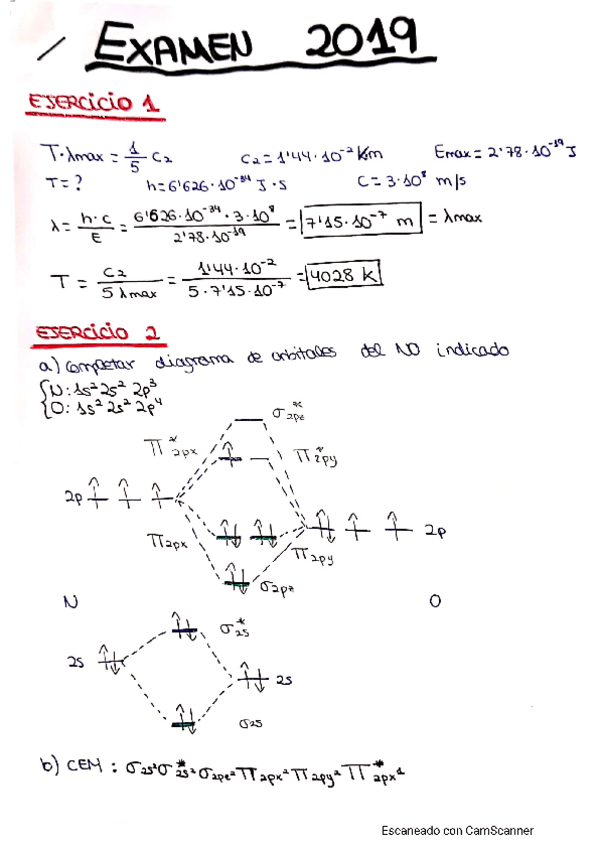 EXAMEN 2019
EJERCICIO 1
T·λmax = 1/5 C2 C2 = 1'44·10⁻² Km Emax = 2'78·10⁻¹⁹ J
T = ? h = 6'626·10⁻³⁴ J·s C = 3·10⁸ m/s
λ = h·c/E = 6'626·10⁻³⁴·3·10⁸/2'78·10⁻¹⁹ = 7'15·10⁻⁷ m = λmax
T = C2/5 λmax = 1'44·10⁻²/5·7'15·10⁻⁷ = 4028 K
EJERCICIO 2
a) Completar diagrama de orbitales del NO indicado
N: 1s² 2s² 2p³
O: 1s² 2s² 2p⁴
σ2pz*
π*2px
π*2py
2p
2p
π2px
π2py
σ2pz
N O
σ2s*
2s
2s
σ2s
b) CEM : σ2s² σ*2s² σ2pz² π2px² π2py² π*2px¹
Escaneado con CamScanner